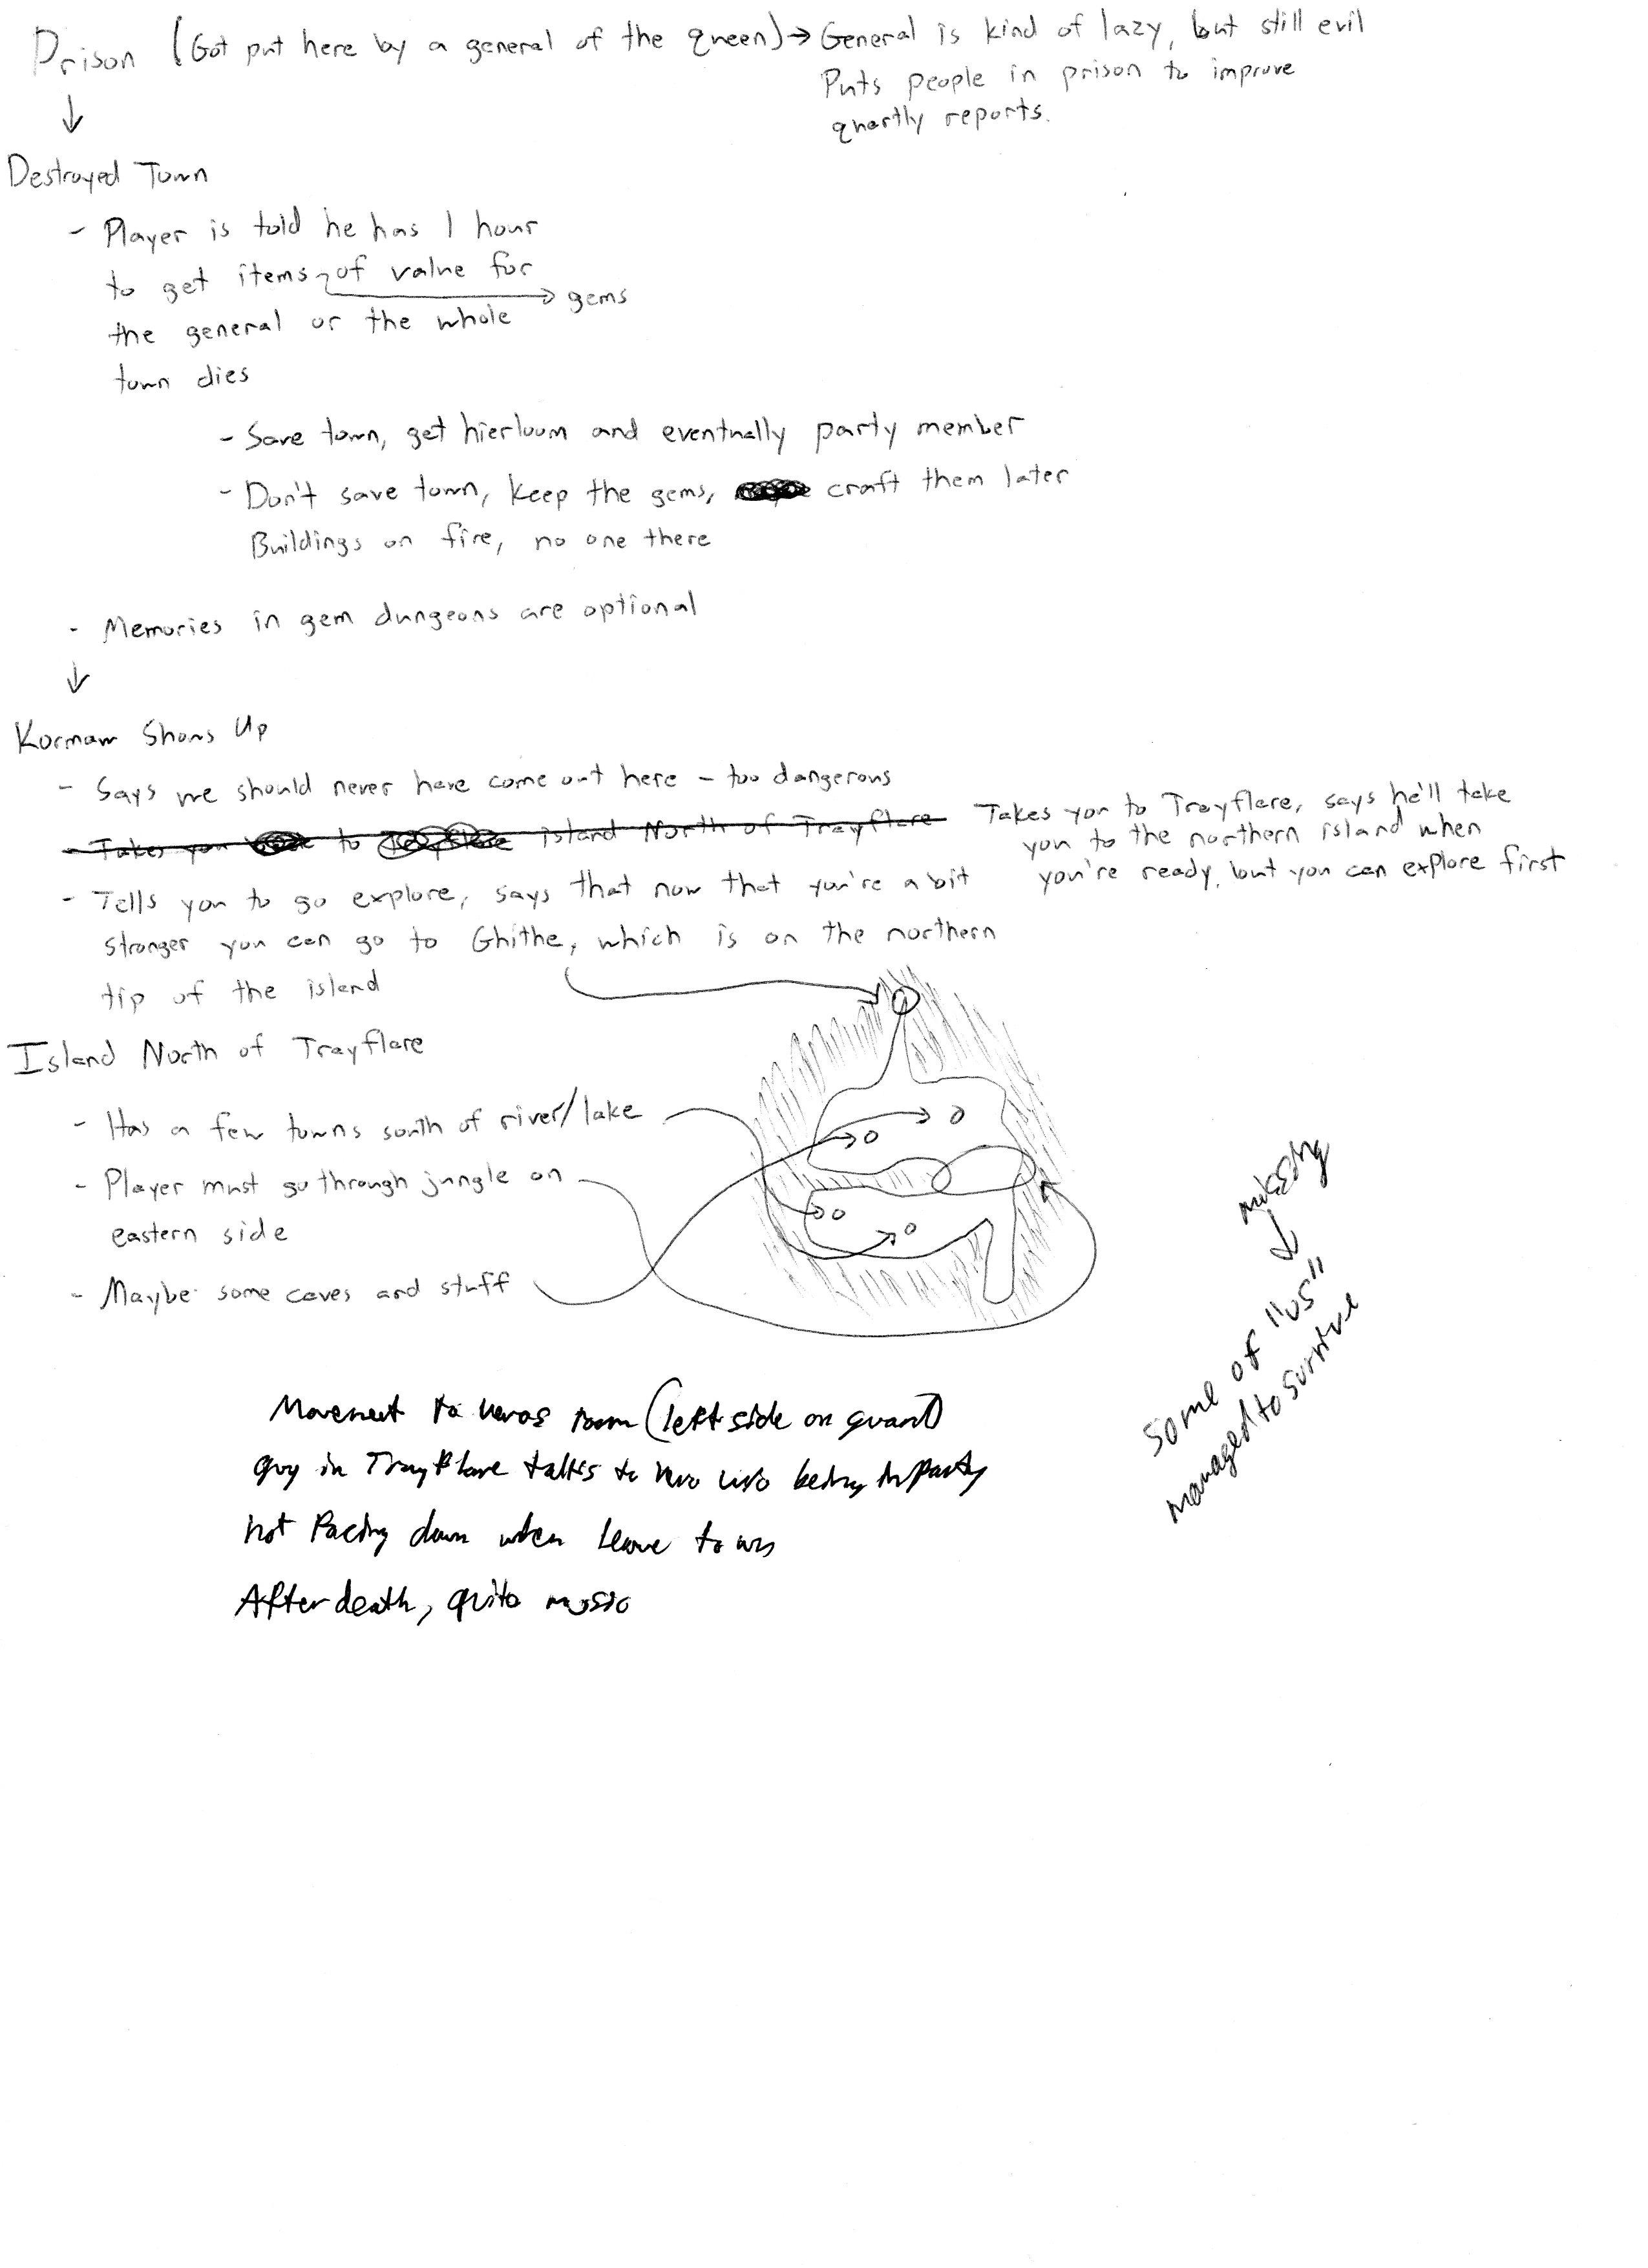 Prison (Got put here by a general of the queen) → General is kind of lazy, but still evil
Puts people in prison to improve
quartly reports.
↓
Destroyed Town
- Player is told he has 1 hour
to get items of value for
→ gems
the general or the whole
town dies
- Save town, get hierloom and eventually party member
- Don't save town, keep the gems, craft them later
Buildings on fire, no one there
- Memories in gem dungeons are optional
↓
Kormaw Shows Up
- Says we should never have come out here - too dangerous
- Takes you to island North of Trayflare
Takes you to Trayflare, says he'll take
you to the northern island when
you're ready, but you can explore first
- Tells you to go explore, says that now that you're a bit
stronger you can go to Ghithe, which is on the northern
tip of the island
Island North of Trayflare
- Has a few towns south of river/lake
- Player must go through jungle on
eastern side
- Maybe some caves and stuff
missing
↓
Some of "us"
managed to survive
Movement to heros room (left side on guard)
guy in Trayflare talks to hero w/o being in party
not facing down when leave town
After death, quito music